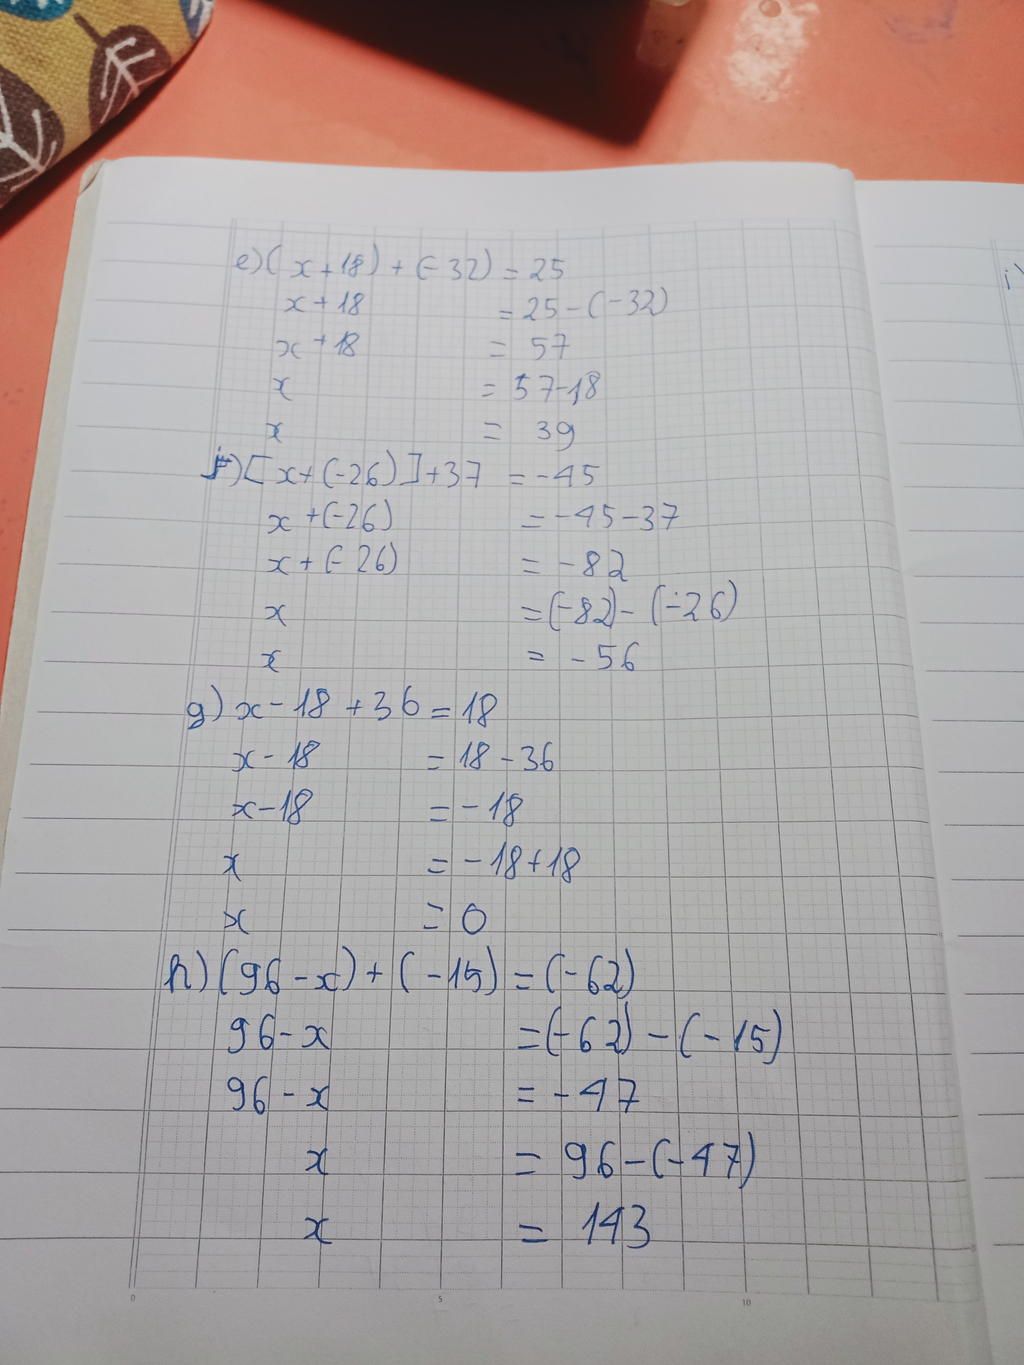 e) (x+18) + (-32) = 25
x+18 = 25-(-32)
x+18 = 57
x = 57-18
x = 39
f) [x+(-26)]+37 = -45
x+(-26) = -45-37
x+(-26) = -82
x = (-82)-(-26)
x = -56
g) x-18+36 = 18
x-18 = 18-36
x-18 = -18
x = -18+18
x = 0
h) (96-x)+(-15) = (-62)
96-x = (-62)-(-15)
96-x = -47
x = 96-(-47)
x = 143
0 5 10
i)